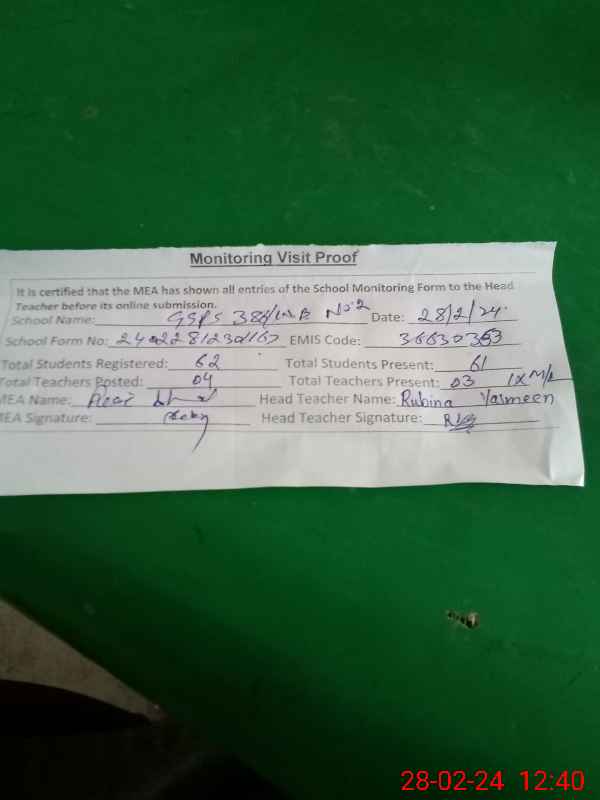 Monitoring Visit Proof
It is certified that the MEA has shown all entries of the School Monitoring Form to the Head
Teacher before its online submission.
School Name: GSPS 384/WB No:2 Date: 28/2/24.
School Form No: EMIS Code: 36630363
Total Students Registered: 62 Total Students Present: 61
Total Teachers Posted: 04 Total Teachers Present: 03 1x M/L
MEA Name: Head Teacher Name: Rubina Yasmeen
MEA Signature: Head Teacher Signature:
28-02-24 12:40